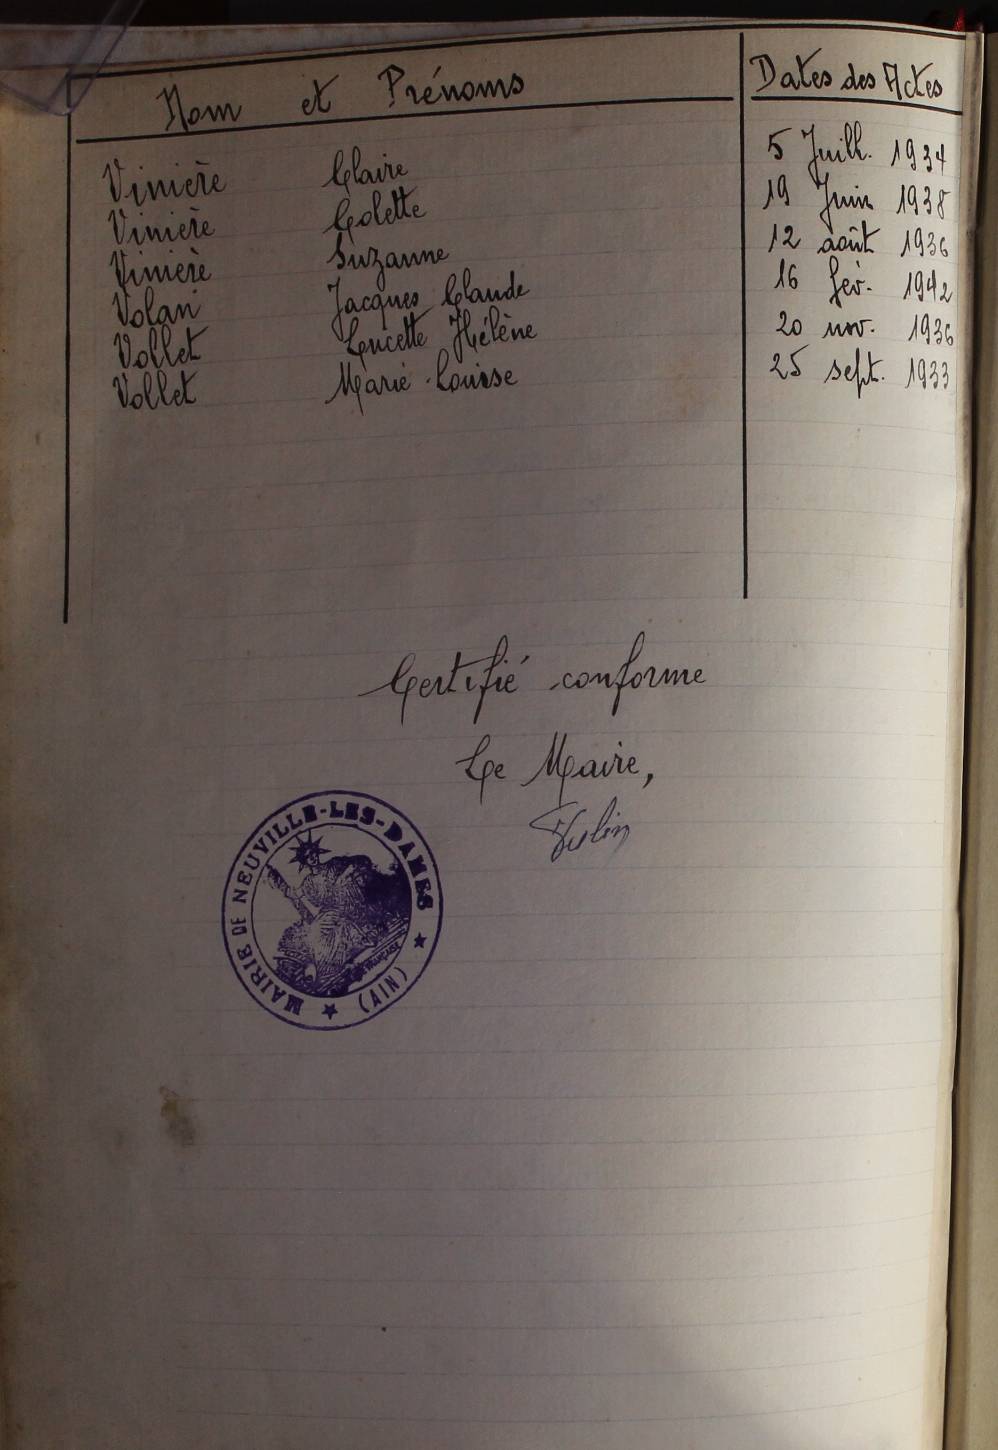 Nom et Prénoms Dates des Actes
Vinière Claire 5 Juill. 1934
Vinière Colette 19 Juin 1938
Vinière Suzanne 12 août 1936
Volan Jacques Claude 16 fév. 1942
Vollet Lucette Hélène 20 nov. 1936
Vollet Marie-Louise 25 sept. 1933
Certifié conforme
Le Maire,
MAIRIE DE NEUVILLE-LES-DAMES
(AIN)